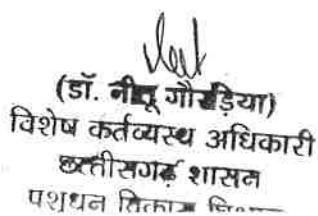 (डॉ. नीतू गौरड़िया)
विशेष कर्तव्यस्थ अधिकारी
छत्तीसगढ़ शासन
पशुधन विकास